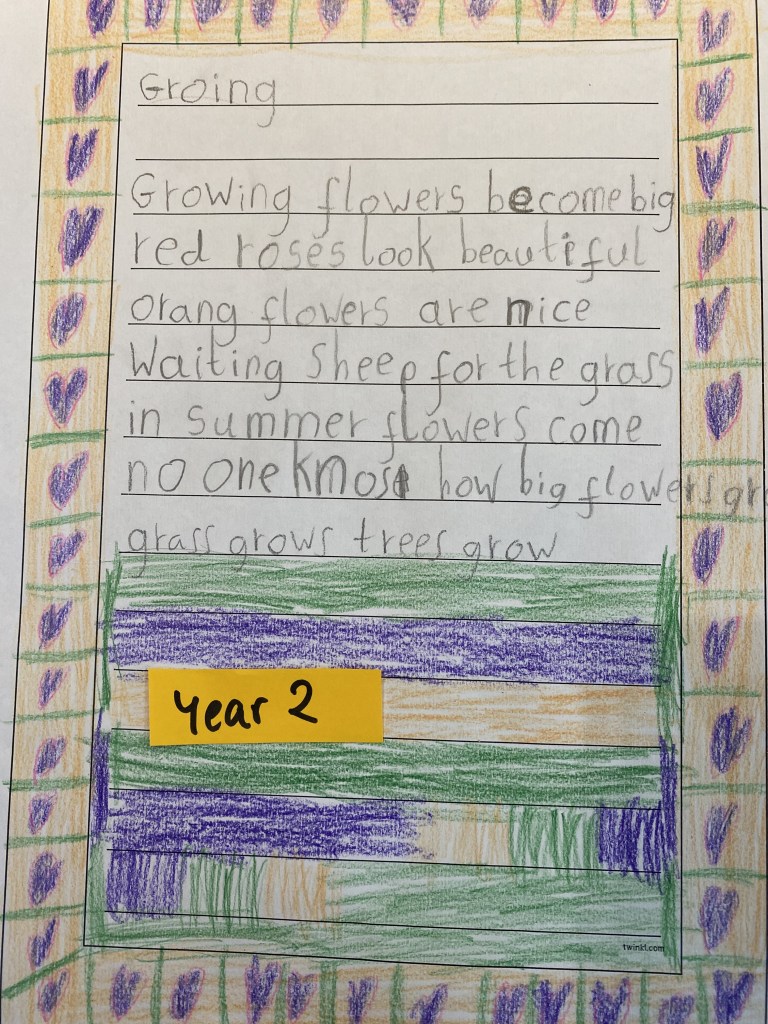 Groing
Growing flowers become big
red roses look beautiful
orang flowers are nice
Waiting Sheep for the grass
in summer flowers come
no one how big flowers gr
grass grows trees grow
Year 2
twinkl.com